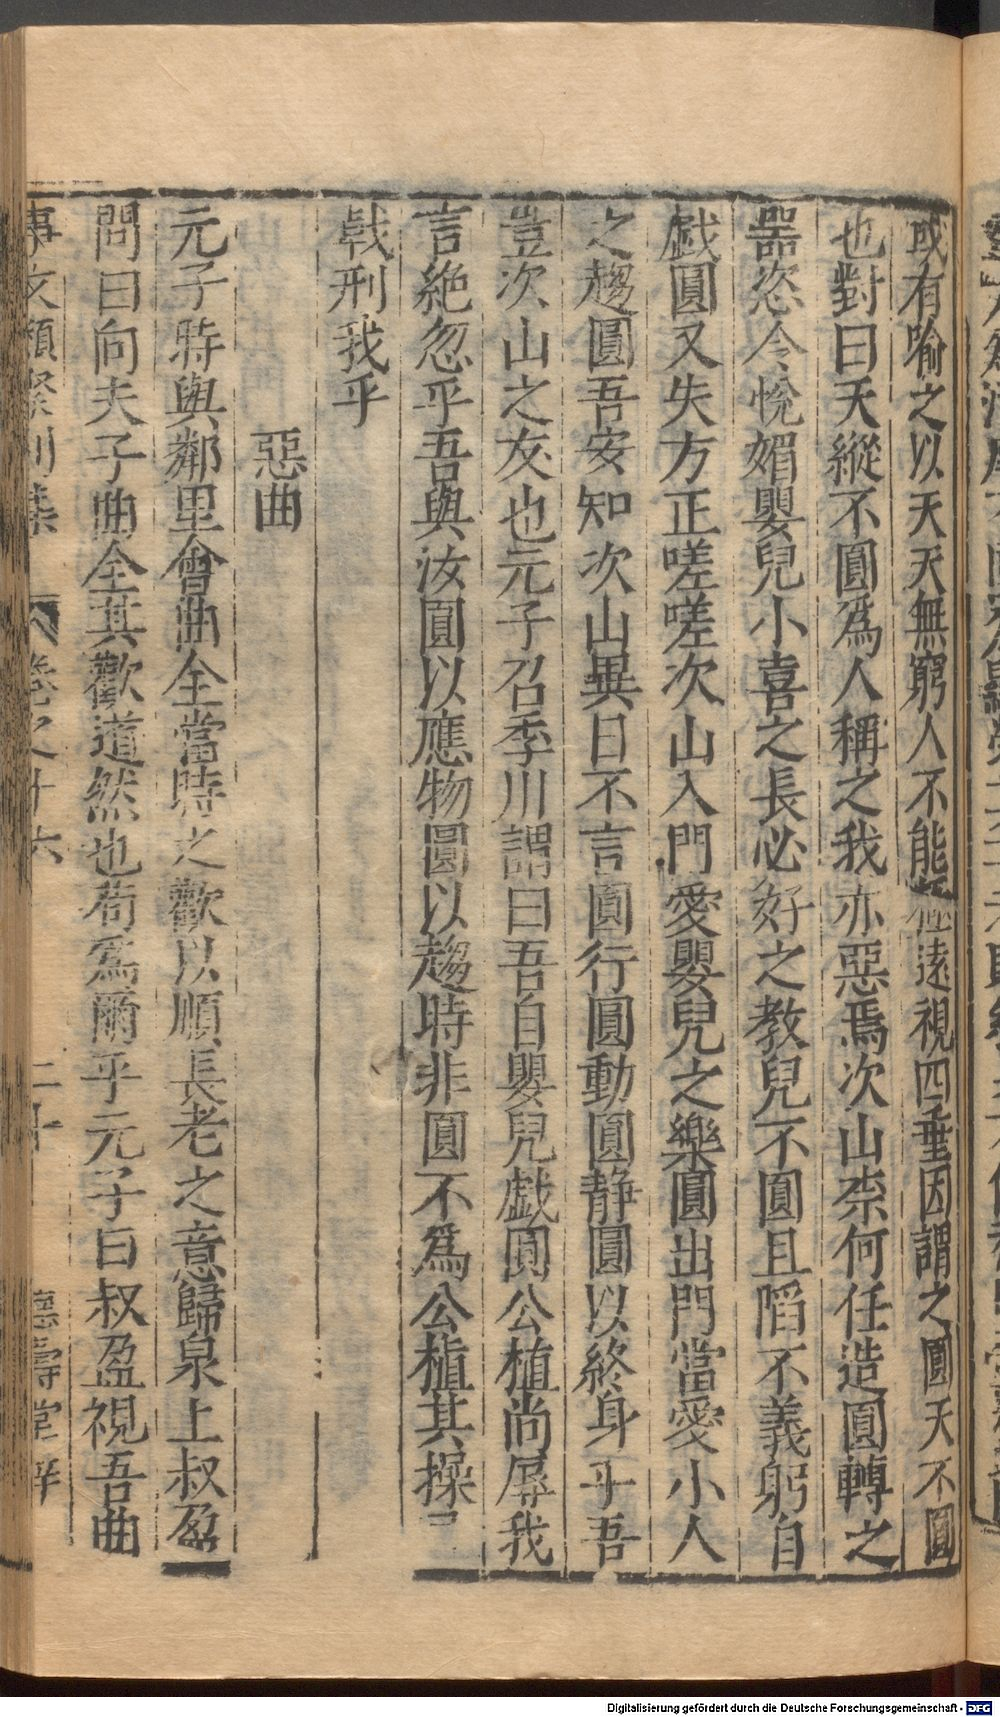 或有喻之以天天無窮人不能極遠視四垂因謂之圓天不圓
也對曰天縱不圓爲人稱之我亦惡焉次山柰何任造圓轉之
器恣令悅媚嬰兒小喜之長必好之教兒不圓且陷不義躬自
戯圓又失方正嗟嗟次山入門愛嬰兒之樂圓出門當愛小人
之趨圓吾安知次山異日不言圓行圓動圓静圓以終身乎吾
豈次山之友也元子召季川謂曰吾自嬰兒戯圓公植尚辱我
言絶忽乎吾與汝圓以應物圓以趨時非圓不爲公植其操
戟刑我乎
惡曲
元子時與鄰里會曲全當時之歡以順長老之意歸泉上叔盈
問曰向夫子曲全其歡道然也苟爲爾乎元子曰叔盈視吾曲
事文類聚別集 卷之十六 二十 德壽堂梓
Digitalisierung gefördert durch die Deutsche Forschungsgemeinschaft - DFG